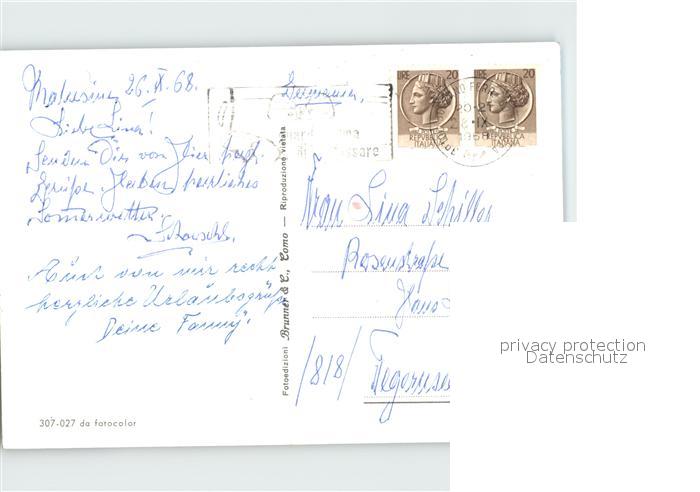 26. IX. 68.
Liebe Lina!
Senden Dir von hier herzl.
Grüße. Haben herrliches
Sommerwetter.
Auch von mir recht
herzliche Urlaubsgrüße
Deine Fanny.
307-027 da fotocolor
Fotoedizioni Brunner & C., Como — Riproduzione vietata
Germania,
LIRE 20
LIRE 20
REPUBBLICA ITALIANA
REPUBBLICA ITALIANA
Frau Lina
Rosenstraße
/818/ Tegernse
privacy protection
Datenschutz